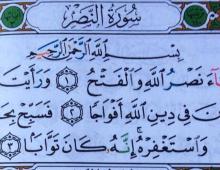 سُورَةُ النَّصْرِ
بِسْمِ اللَّهِ الرَّحْمَٰنِ الرَّحِيمِ
نَصْرُ اللَّهِ وَالْفَتْحُ ﴿١﴾ وَرَأَيْتَ
فِي دِينِ اللَّهِ أَفْوَاجًا ﴿٢﴾ فَسَبِّحْ
وَاسْتَغْفِرْهُ إِنَّهُ كَانَ تَوَّابًا ﴿٣﴾